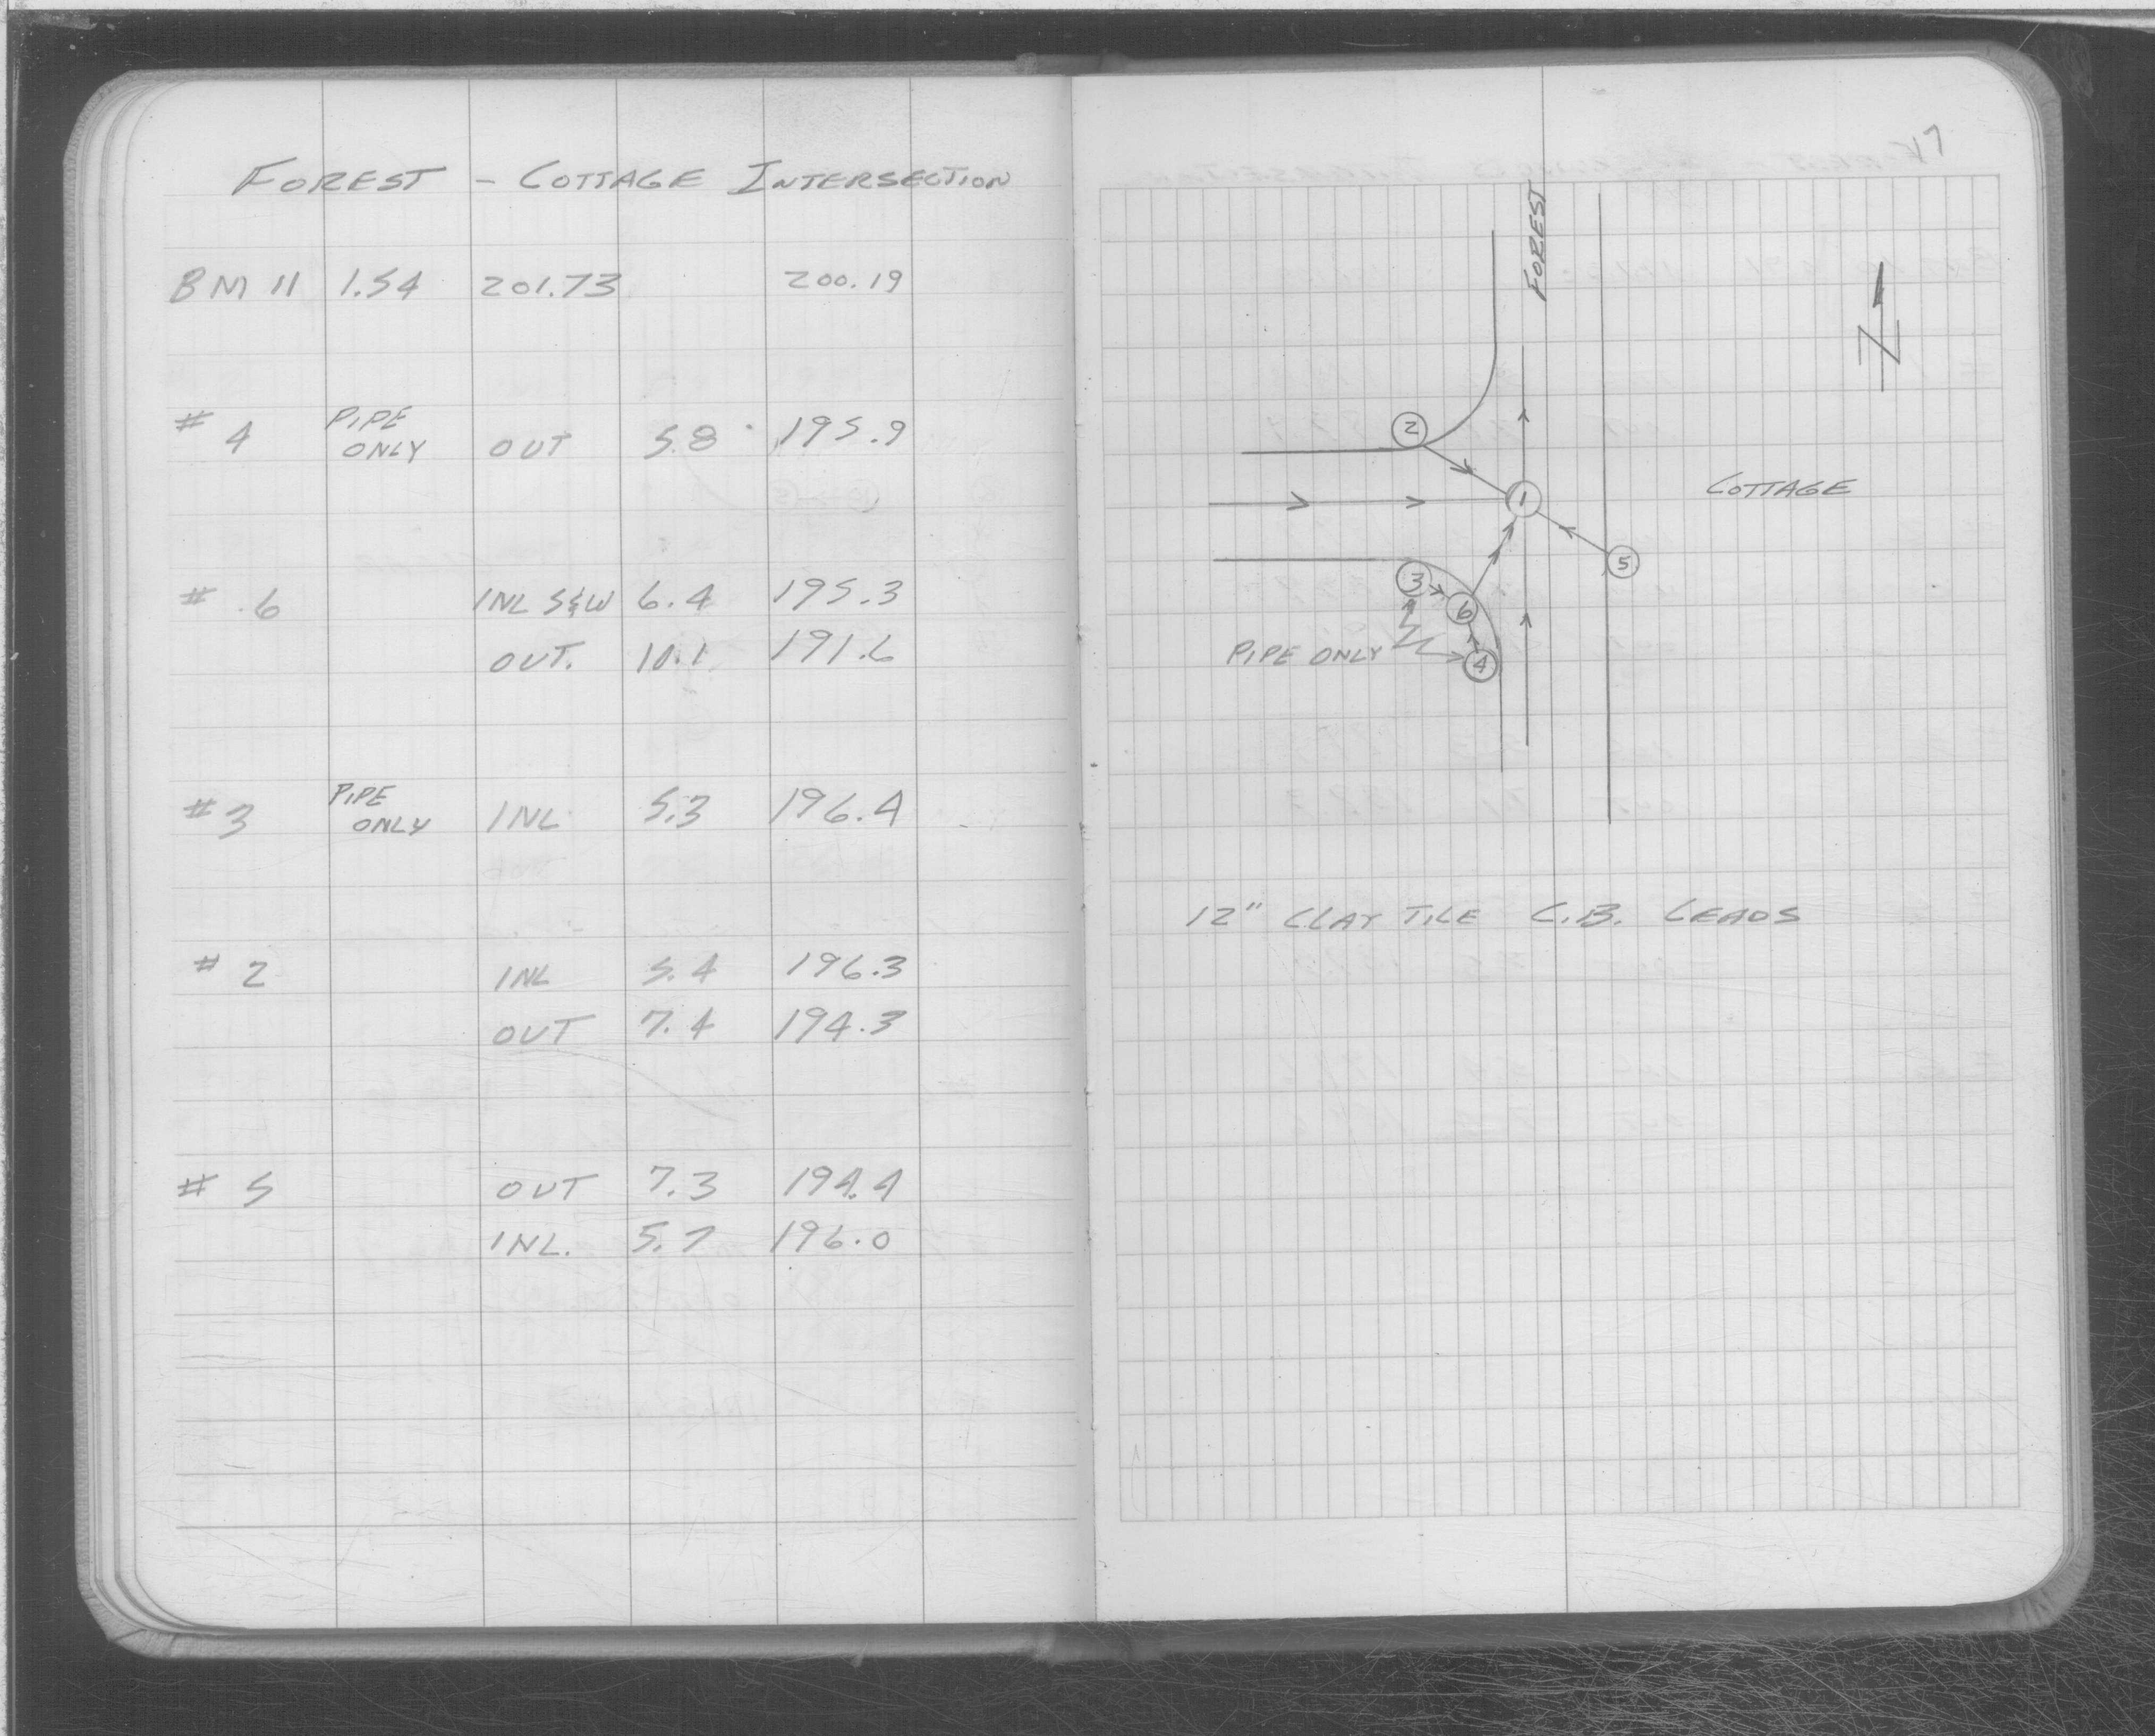 FOREST - COTTAGE INTERSECTION
BM 11 1.54 201.73 200.19
# 4 PIPE ONLY OUT 5.8 195.9
# 6 INL S&W 6.4 195.3
OUT. 10.1 191.6
#3 PIPE ONLY INL 5.3 196.4
# 2 INL 5.4 196.3
OUT 7.4 194.3
# 5 OUT 7.3 194.4
INL. 5.7 196.0
17
FOREST
N
2
1
COTTAGE
5
3
6
PIPE ONLY
4
12" CLAY TILE C.B. LEADS